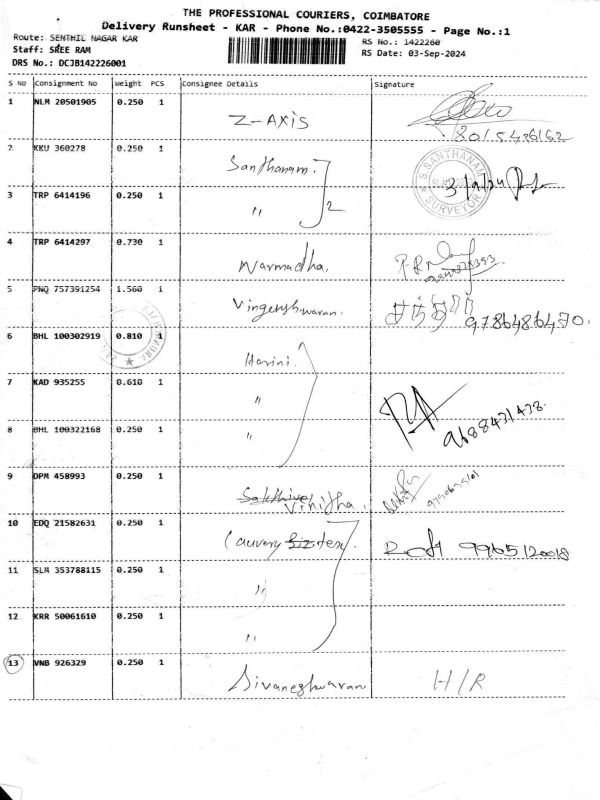 THE PROFESSIONAL COURIERS, COIMBATORE
Delivery Runsheet - KAR - Phone No.:0422-3505555 - Page No.:1
Route: SENTHIL NAGAR KAR
RS No.: 1422260
Staff: SREE RAM
RS Date: 03-Sep-2024
DRS No.: DCJB142226001
S No Consignment No Weight PCS Consignee Details Signature
1 NLM 20501905 0.250 1 Z-AXIS
2 KKU 360278 0.250 1 Santhanam. S.SANTHANAM SURVEYOR
3 TRP 6414196 0.250 1 " 2 3/9/24
4 TRP 6414297 0.730 1 Narmadha.
5 PNQ 757391254 1.560 1 9786486470.
6 BHL 100302919 0.810 1 Harini.
7 KAD 935255 0.610 1 "
8 BHL 100322168 0.250 1 " 9688431438.
9 DPM 458993 0.250 1 Vinitha.
10 EDQ 21582631 0.250 1 Cauvery 9965120018
11 SLM 353788115 0.250 1 "
12 KRR 50061610 0.250 1 "
13 VNB 926329 0.250 1 Sivaneshwaran H/R